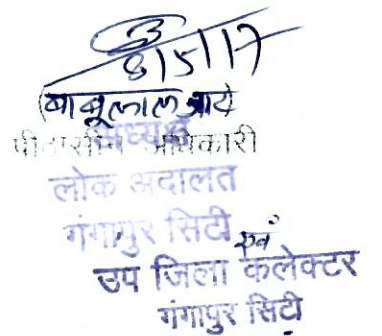 8/5/17
(बाबूलाल जाटव)
अध्यक्ष
पीठासीन अधिकारी
लोक अदालत
गंगापुर सिटी
एवं
उप जिला कलेक्टर
गंगापुर सिटी